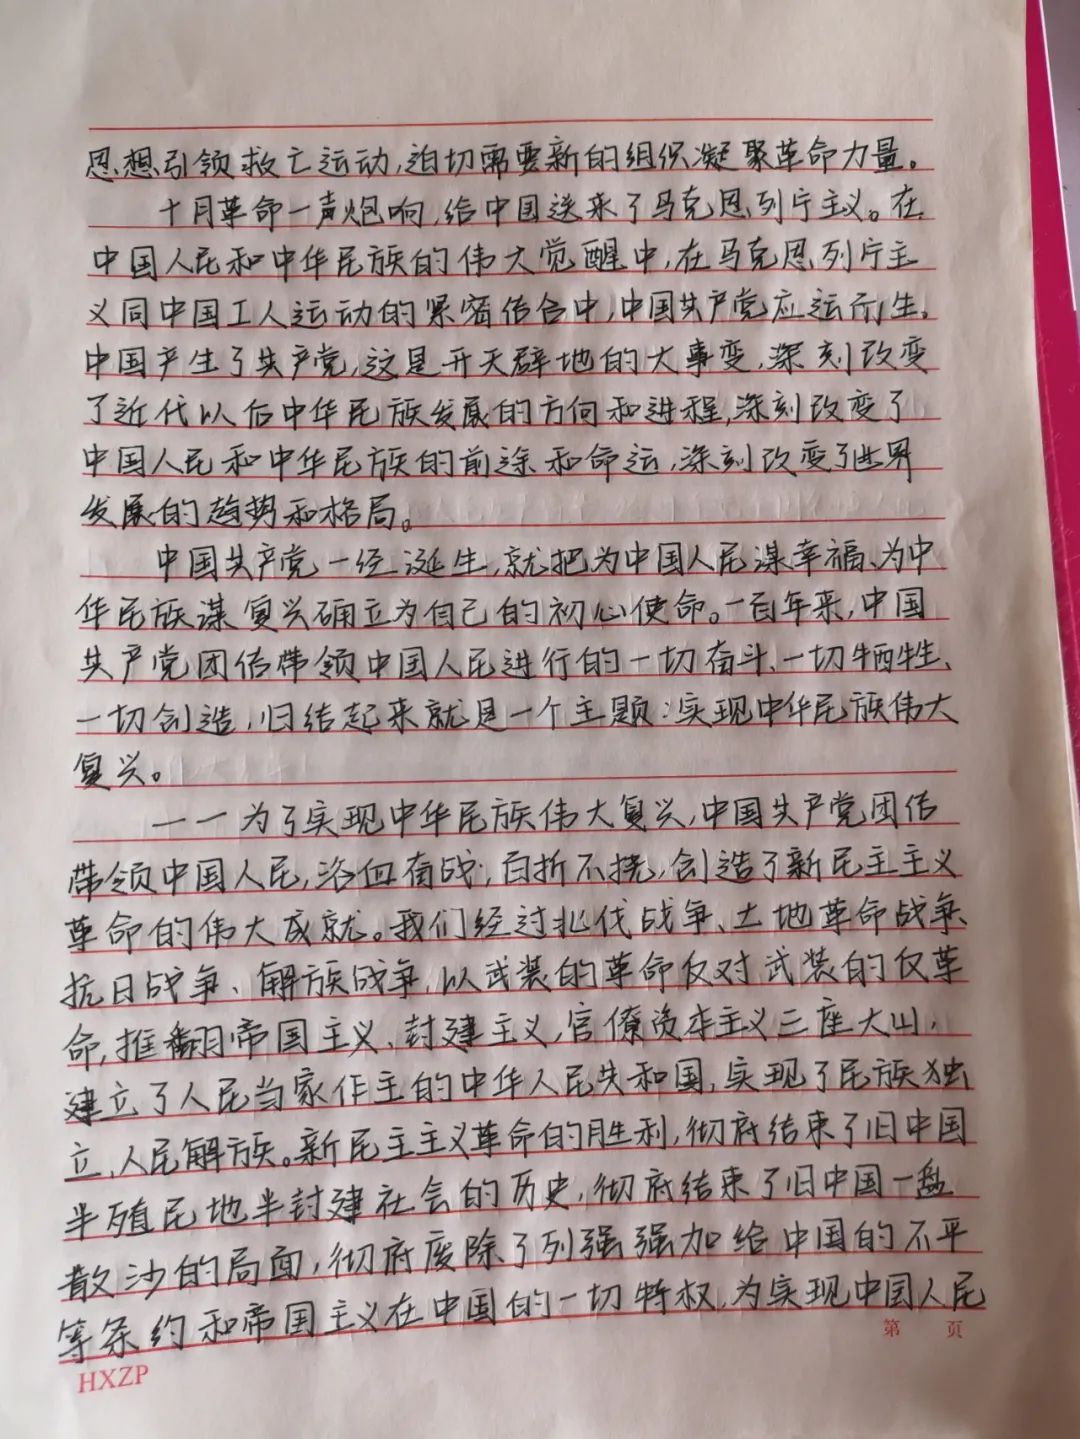 思想引领救亡运动,迫切需要新的组织凝聚革命力量。
十月革命一声炮响,给中国送来了马克思列宁主义。在
中国人民和中华民族的伟大觉醒中,在马克思列宁主
义同中国工人运动的紧密结合中,中国共产党应运而生。
中国产生了共产党,这是开天辟地的大事变,深刻改变
了近代以后中华民族发展的方向和进程,深刻改变了
中国人民和中华民族的前途和命运,深刻改变了世界
发展的趋势和格局。
中国共产党一经诞生,就把为中国人民谋幸福、为中
华民族谋复兴确立为自己的初心使命。一百年来,中国
共产党团结带领中国人民进行的一切奋斗、一切牺牲、
一切创造,归结起来就是一个主题:实现中华民族伟大
复兴。
一一为了实现中华民族伟大复兴,中国共产党团结
带领中国人民,浴血奋战;百折不挠,创造了新民主主义
革命的伟大成就。我们经过北伐战争、土地革命战争、
抗日战争、解族战争,以武装的革命反对武装的反革
命,推翻帝国主义、封建主义,官僚资本主义三座大山,
建立了人民当家作主的中华人民共和国,实现了民族独
立、人民解族。新民主主义革命的胜利,彻底结束了旧中国
半殖民地半封建社会的历史,彻底结束了旧中国一盘
散沙的局面,彻底废除了列强强加给中国的不平
等条约和帝国主义在中国的一切特权,为实现中国人民
第 页
HXZP